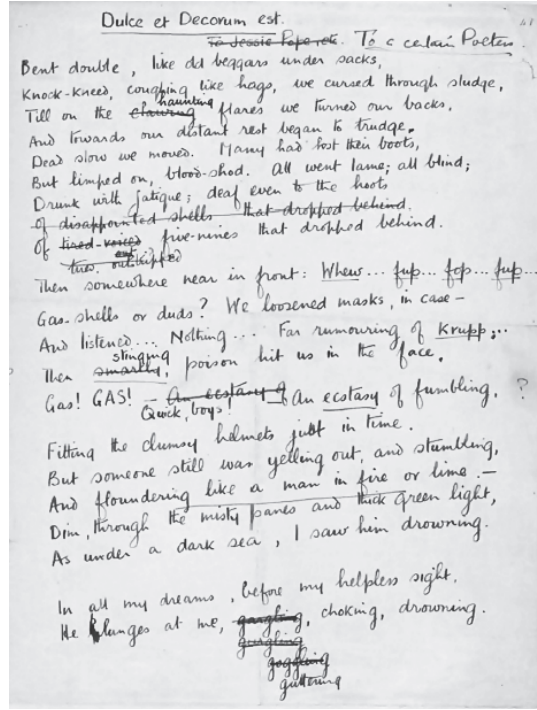 Dulce et Decorum est.
To Jessie Pope etc. To a certain Poetess.
Bent double, like old beggars under sacks,
Knock-kneed, coughing like hags, we cursed through sludge,
haunting
Till on the clawing flares we turned our backs,
And towards our distant rest began to trudge.
Dead slow we moved. Many had lost their boots,
But limped on, blood-shod. All went lame; all blind;
Drunk with fatigue; deaf even to the hoots
of disappointed shells that dropped behind.
Of tired-voiced five-nines that dropped behind.
out
outstripped
Then somewhere near in front: Whew... fup... fop... fup...
Gas-shells or duds? We loosened masks, in case —
And listened... Nothing... Far rumouring of Krupp;...
stinging
Then smartly, poison hit us in the face.
Gas! GAS! — An ecstasy of An ecstasy of fumbling, ?
Quick, boys!
Fitting the clumsy helmets just in time.
But someone still was yelling out, and stumbling,
And floundering like a man in fire or lime. —
Dim, through the misty panes and thick green light,
As under a dark sea, I saw him drowning.
In all my dreams, before my helpless sight,
He plunges at me, gargling, choking, drowning.
gurgling
goggling
guttering